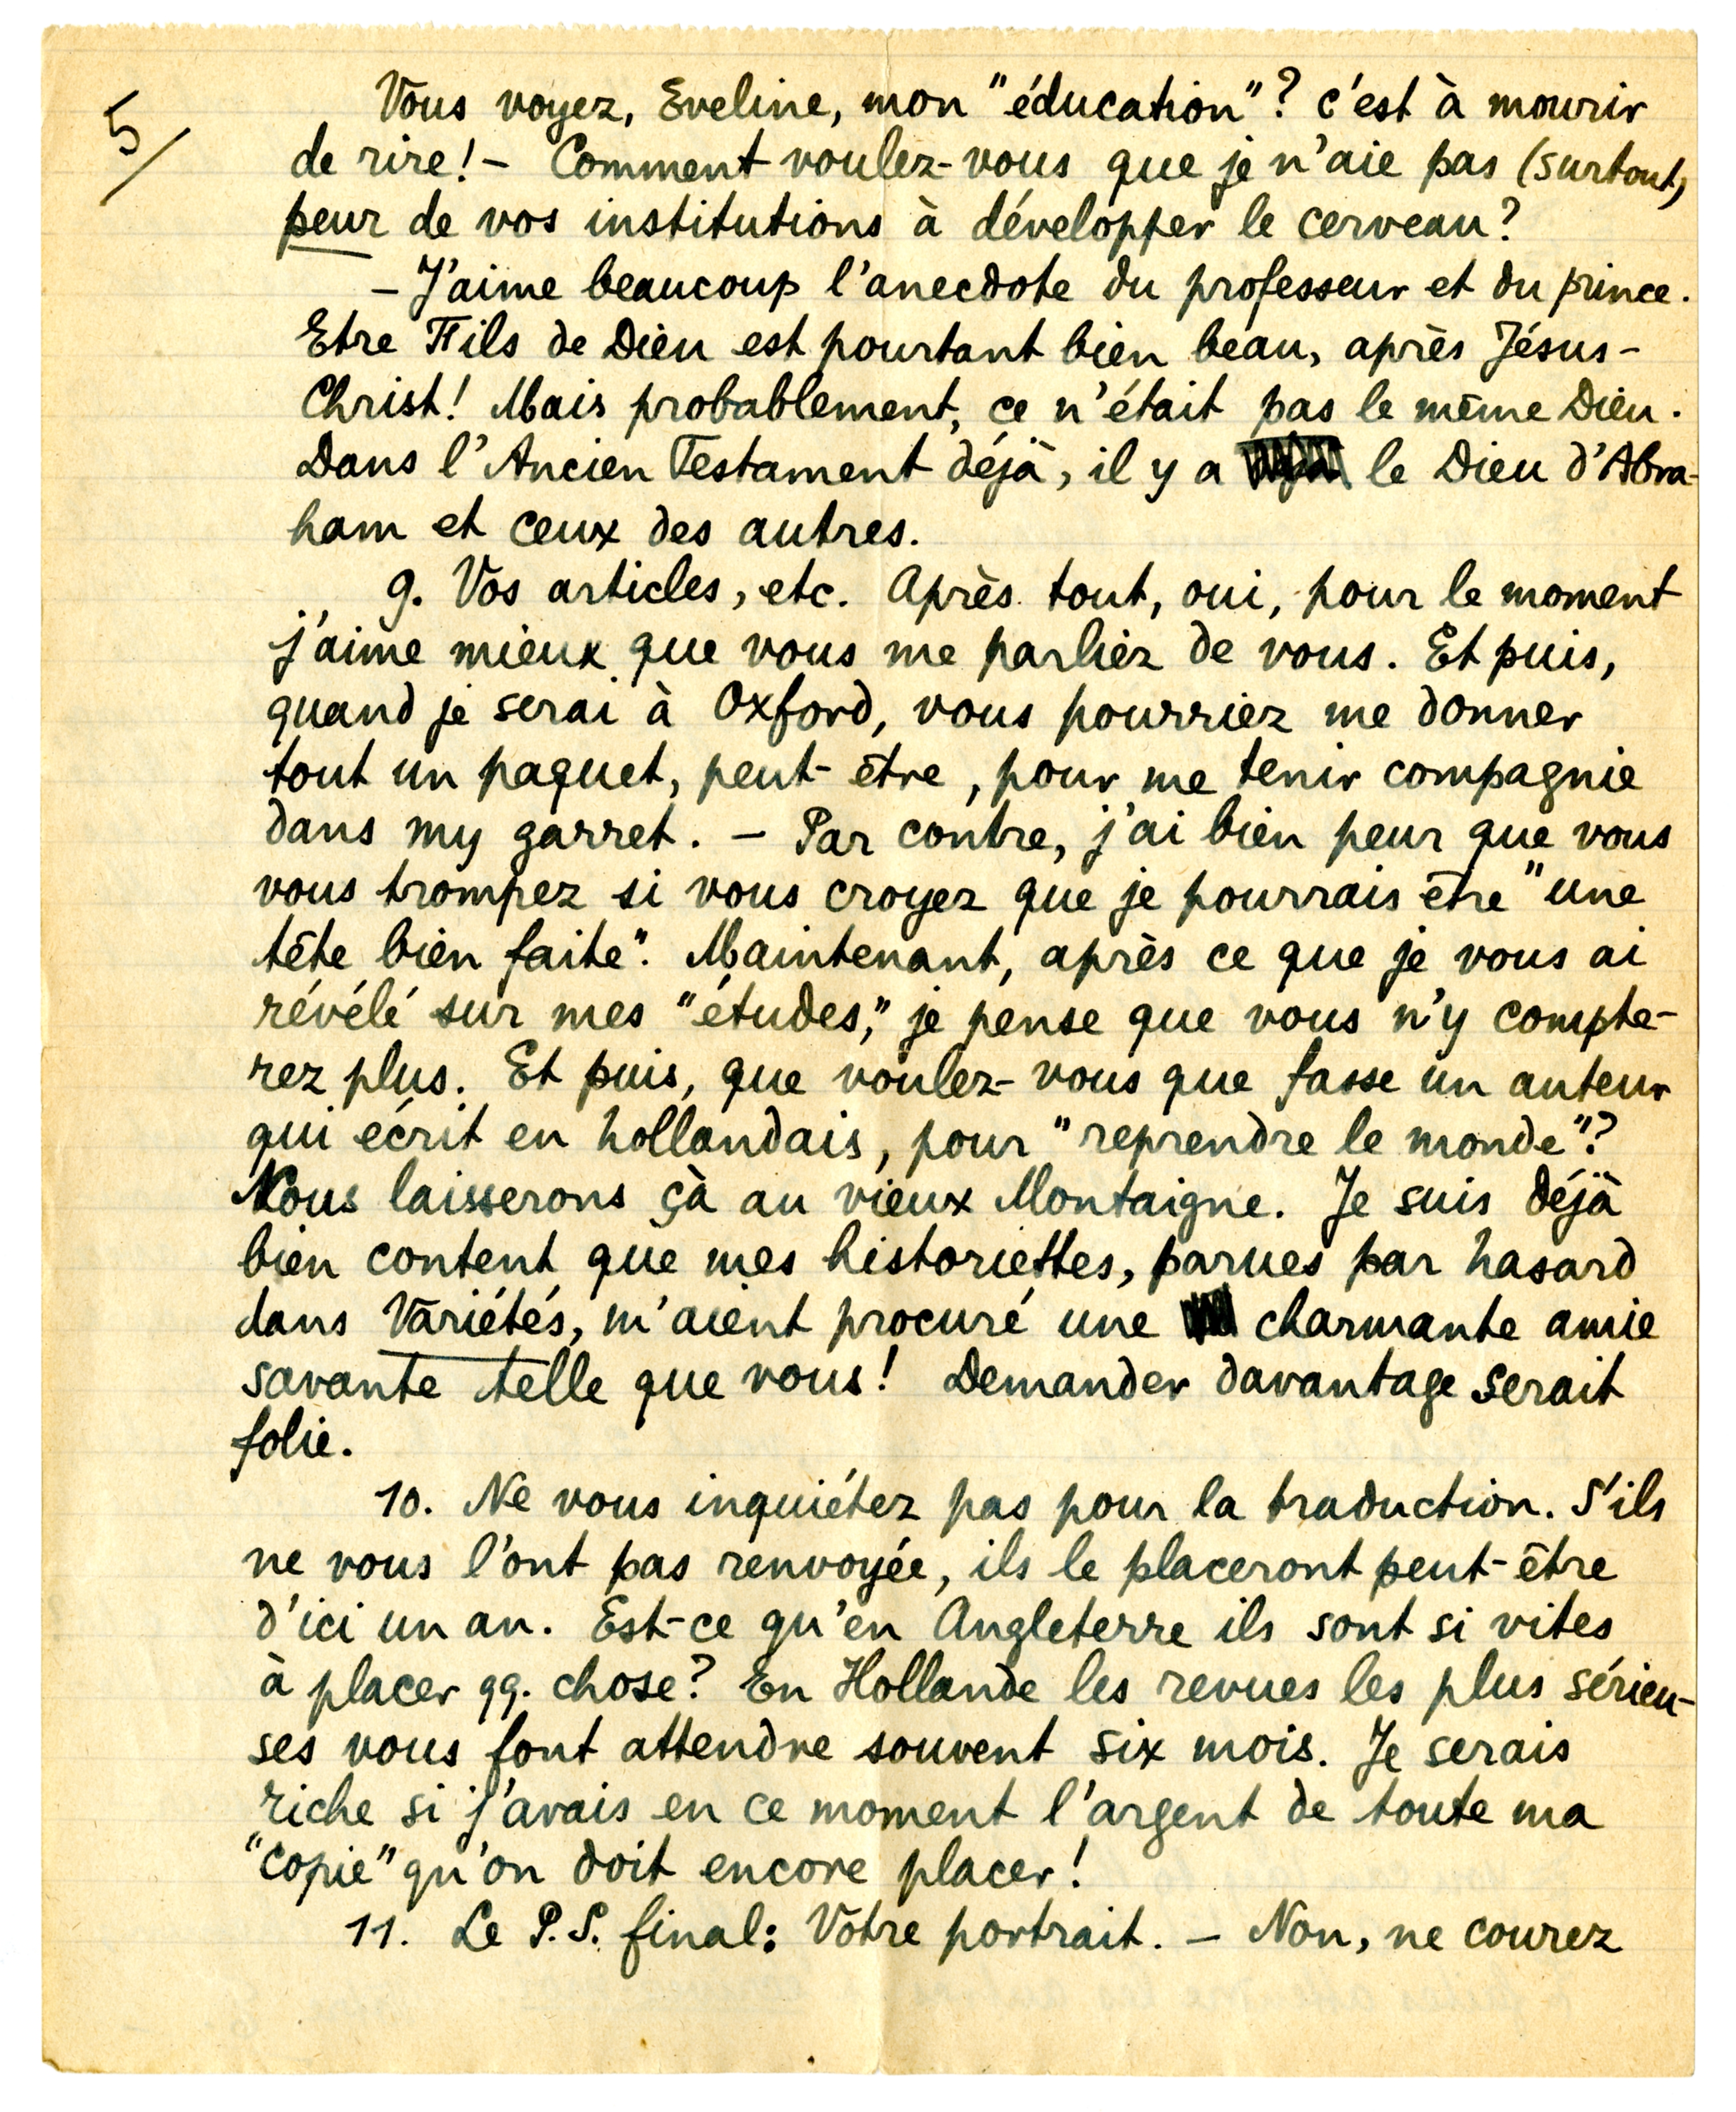 5/
Vous voyez, Eveline, mon "éducation"? c'est à mourir
de rire! - Comment voulez-vous que je n'aie pas (surtout)
peur de vos institutions à développer le cerveau?
- J'aime beaucoup l'anecdote du professeur et du prince.
Etre Fils de Dieu est pourtant bien beau, après Jésus-
Christ! Mais probablement, ce n'était pas le même Dieu.
Dans l'Ancien Testament déjà, il y a le Dieu d'Abra-
ham et ceux des autres.
9. Vos articles, etc. Après tout, oui, pour le moment
j'aime mieux que vous me parliez de vous. Et puis,
quand je serai à Oxford, vous pourriez me donner
tout un paquet, peut-être, pour me tenir compagnie
dans my garret. - Par contre, j'ai bien peur que vous
vous trompez si vous croyez que je pourrais être "une
tête bien faite". Maintenant, après ce que je vous ai
révélé sur mes "études," je pense que vous n'y compte-
rez plus. Et puis, que voulez-vous que fasse un auteur
qui écrit en hollandais, pour "reprendre le monde"?
Nous laisserons çà au vieux Montaigne. Je suis déjà
bien content que mes historiettes, parues par hasard
dans Variétés, m'aient procuré une charmante amie
savante telle que vous! Demander davantage serait
folie.
10. Ne vous inquiétez pas pour la traduction. S'ils
ne vous l'ont pas renvoyée, ils le placeront peut-être
d'ici un an. Est-ce qu'en Angleterre ils sont si vites
à placer qq. chose? En Hollande les revues les plus sérieu-
ses vous font attendre souvent six mois. Je serais
riche si j'avais en ce moment l'argent de toute ma
"copie" qu'on doit encore placer!
11. Le P.S. final: Votre portrait. - Non, ne courez